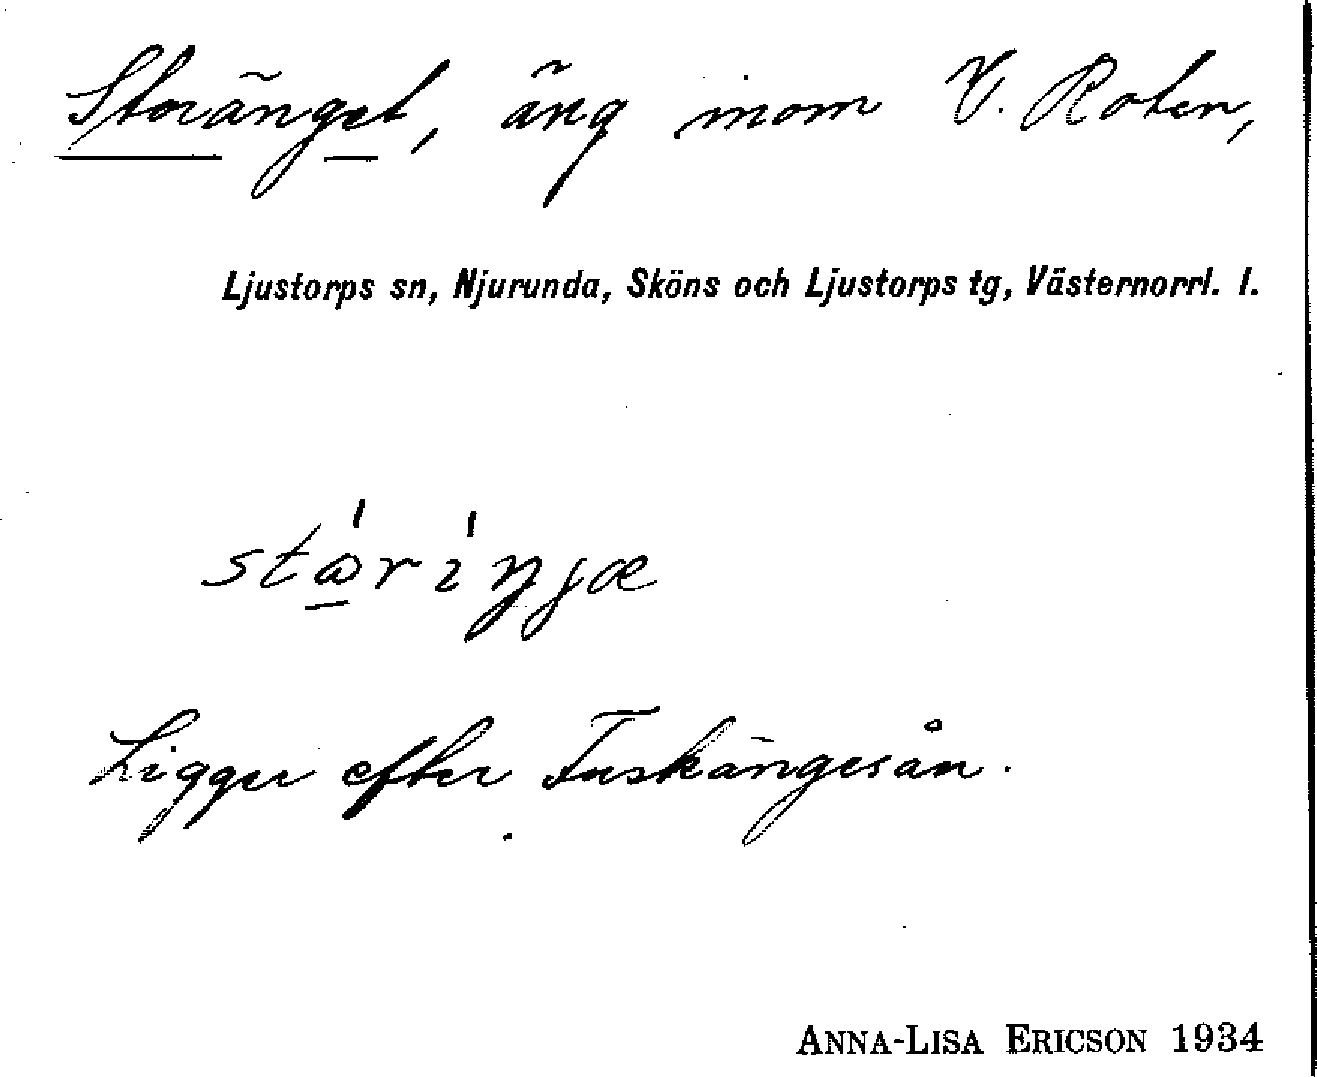 Storänget, äng inom V. Roten,
Ljustorps sn, Njurunda, Sköns och Ljustorps tg, Västernorrl. l.
Ligger efter Tuskängesån.
ANNA-LISA ERICSON 1934